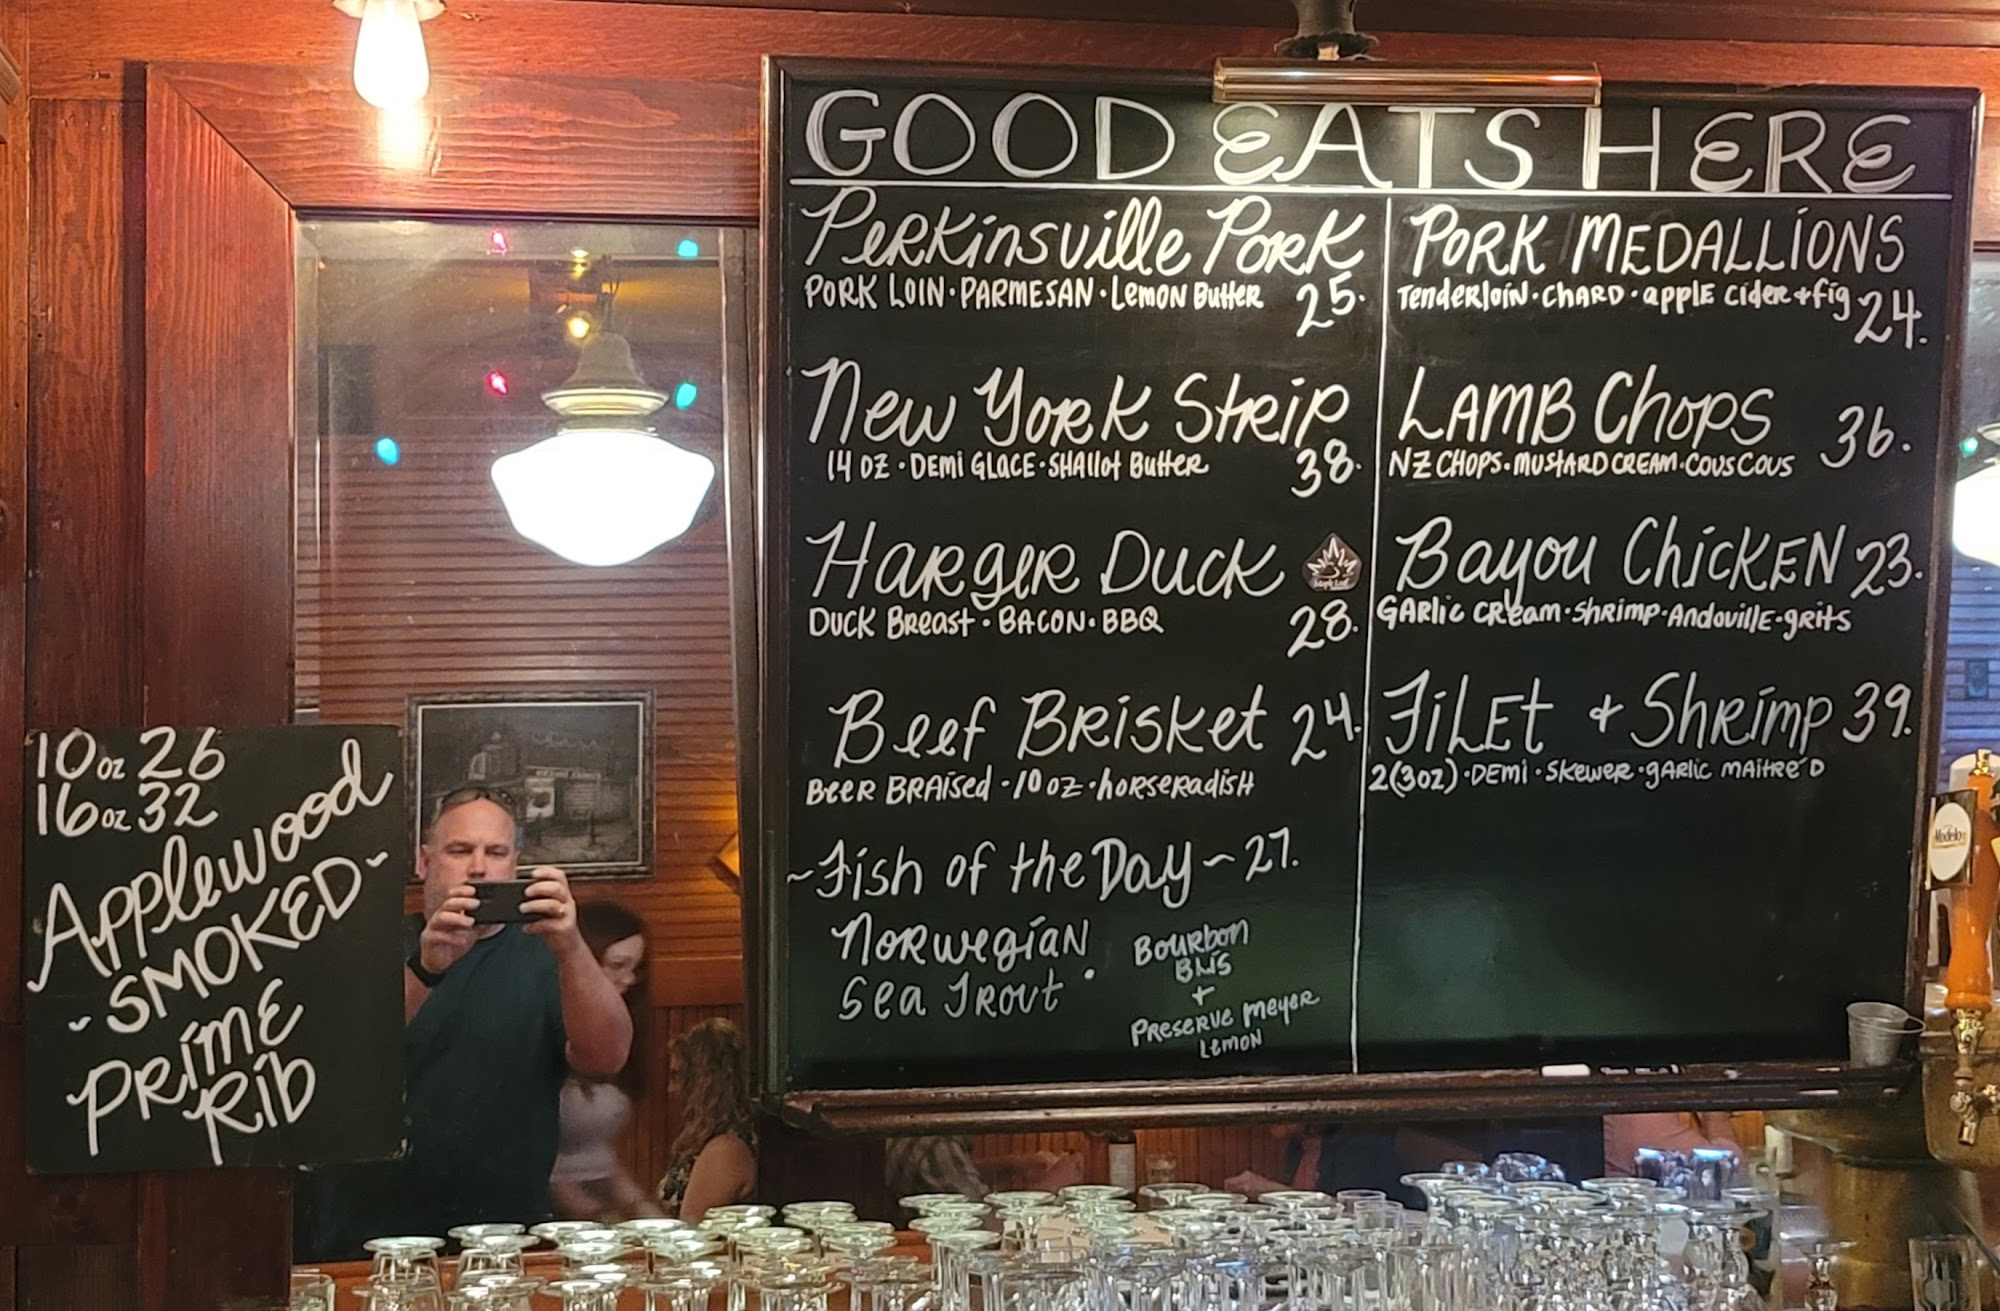 GOOD EATS HERE
Perkinsville Pork
PORK LOIN · PARMESAN · Lemon Butter 25.
New York Strip
14 oz · Demi Glace · Shallot Butter 38.
Harger Duck
Duck Breast · Bacon · BBQ 28.
Beef Brisket 24.
Beer Braised · 10 oz · horseradish
~Fish of the Day~ 27.
Norwegian
Sea Trout ·
Bourbon
Blis
+
Preserve Meyer
Lemon
Pork Medallions
Tenderloin · chard · apple cider + fig 24.
Lamb Chops 36.
NZ CHOPS · MUSTARD CREAM · COUS COUS
Bayou Chicken 23.
Garlic cream · shrimp · Andouille · grits
Filet + Shrimp 39.
2(3oz) · Demi · Skewer · garlic maitre'D
10 oz 26
16 oz 32
Applewood
-SMOKED-
PRIME
Rib
Maple Leaf
Modelo